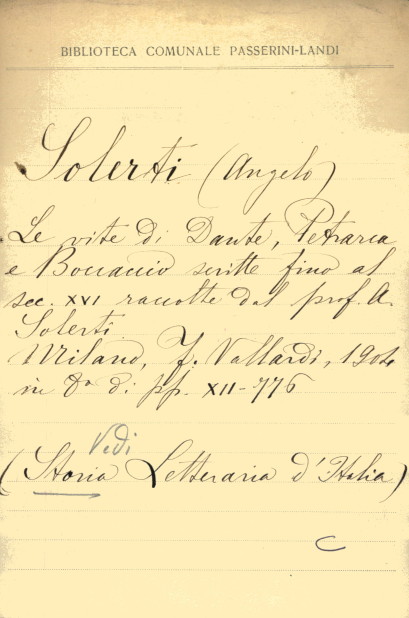 BIBLIOTECA COMUNALE PASSERINI-LANDI
Solerti (Angelo)
Le vite di Dante, Petrarca
e Boccaccio scritte fino al
sec. XVI raccolte dal prof. A.
Solerti
Milano, F. Vallardi, 1904
in 8º di pp. XII-776
Vedi
(Storia Letteraria d'Italia)
C